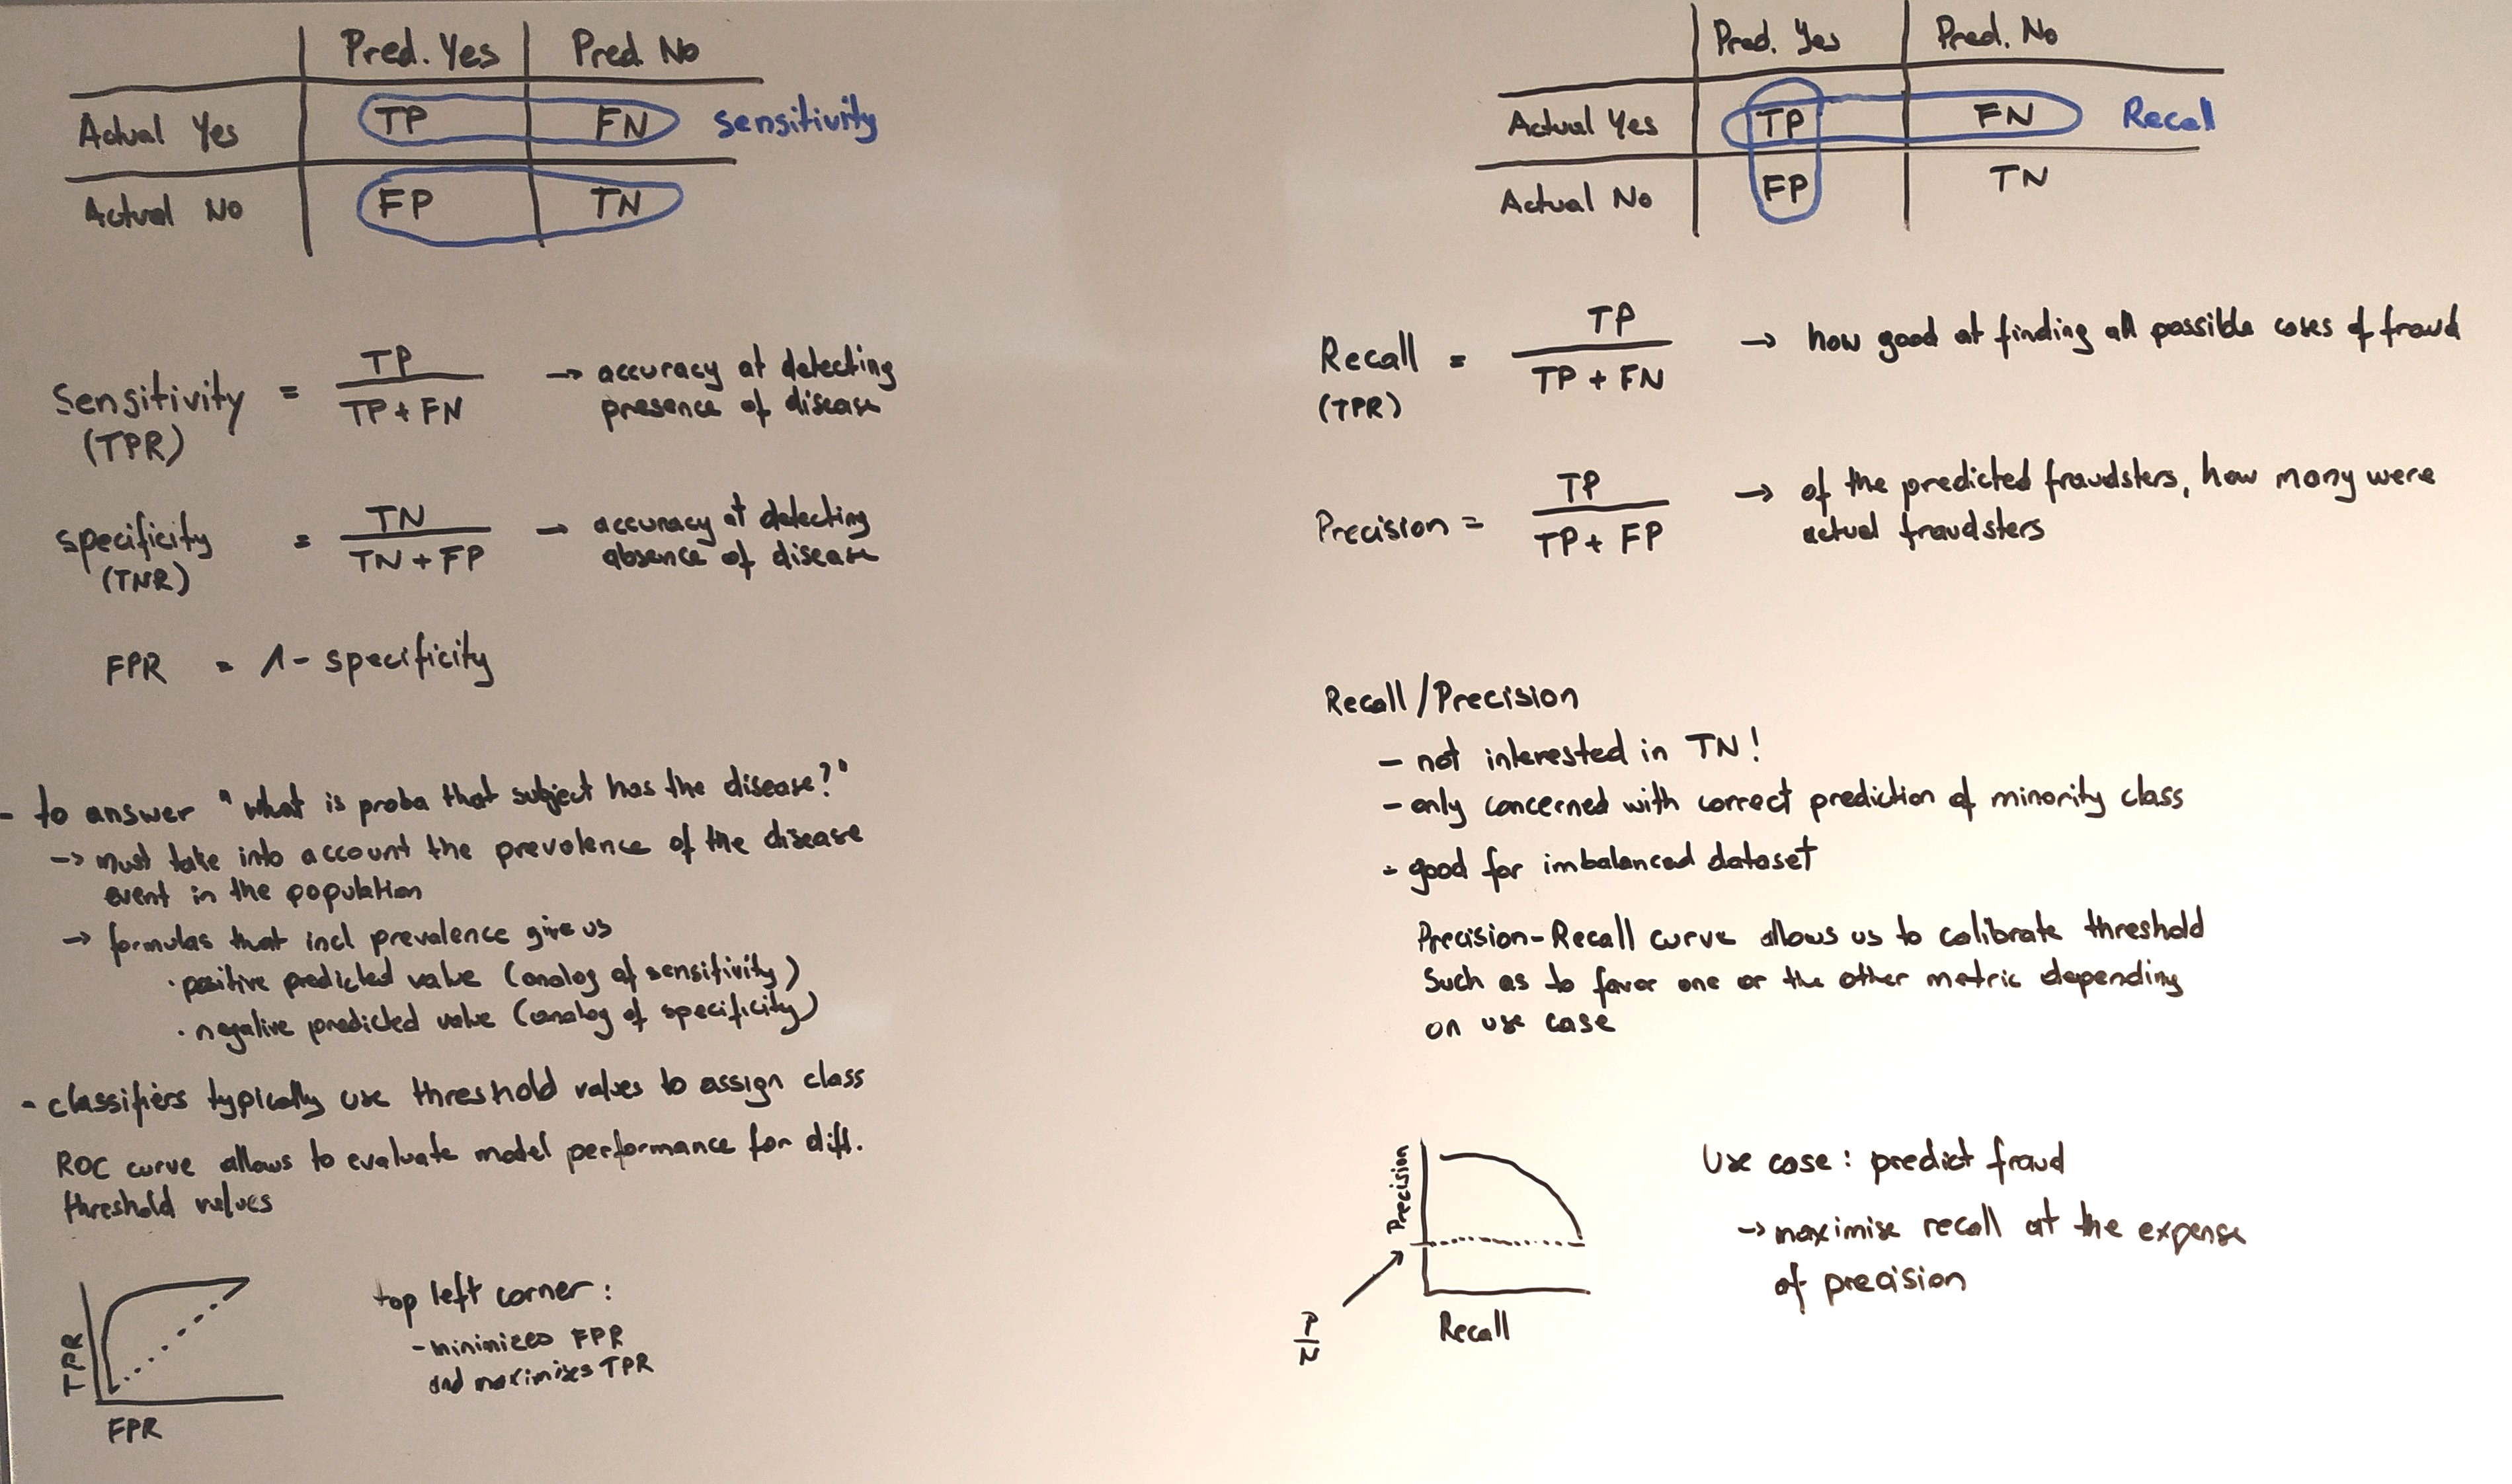 Pred. Yes Pred. No
Actual Yes TP FN sensitivity
Actual No FP TN
Sensitivity = TP / TP + FN → accuracy at detecting
(TPR) presence of disease
specificity = TN / TN + FP → accuracy at detecting
(TNR) absence of disease
FPR = 1 - specificity
- to answer "what is proba that subject has the disease?"
→ must take into account the prevalence of the disease
event in the population
→ formulas that incl prevalence give us
· positive predicted value (analog of sensitivity)
· negative predicted value (analog of specificity)
- classifiers typically use threshold values to assign class
ROC curve allows to evaluate model performance for diff.
threshold values
TPR
FPR
top left corner:
- minimizes FPR
and maximizes TPR
Pred. Yes Pred. No
Actual Yes TP FN Recall
Actual No FP TN
Recall = TP / TP + FN → how good at finding all possible cases of fraud
(TPR)
Precision = TP / TP + FP → of the predicted fraudsters, how many were
actual fraudsters
Recall/Precision
- not interested in TN!
- only concerned with correct prediction of minority class
- good for imbalanced dataset
Precision-Recall curve allows us to calibrate threshold
such as to favor one or the other metric depending
on use case
Precision
Recall
P / N
Use case: predict fraud
→ maximise recall at the expense
of precision